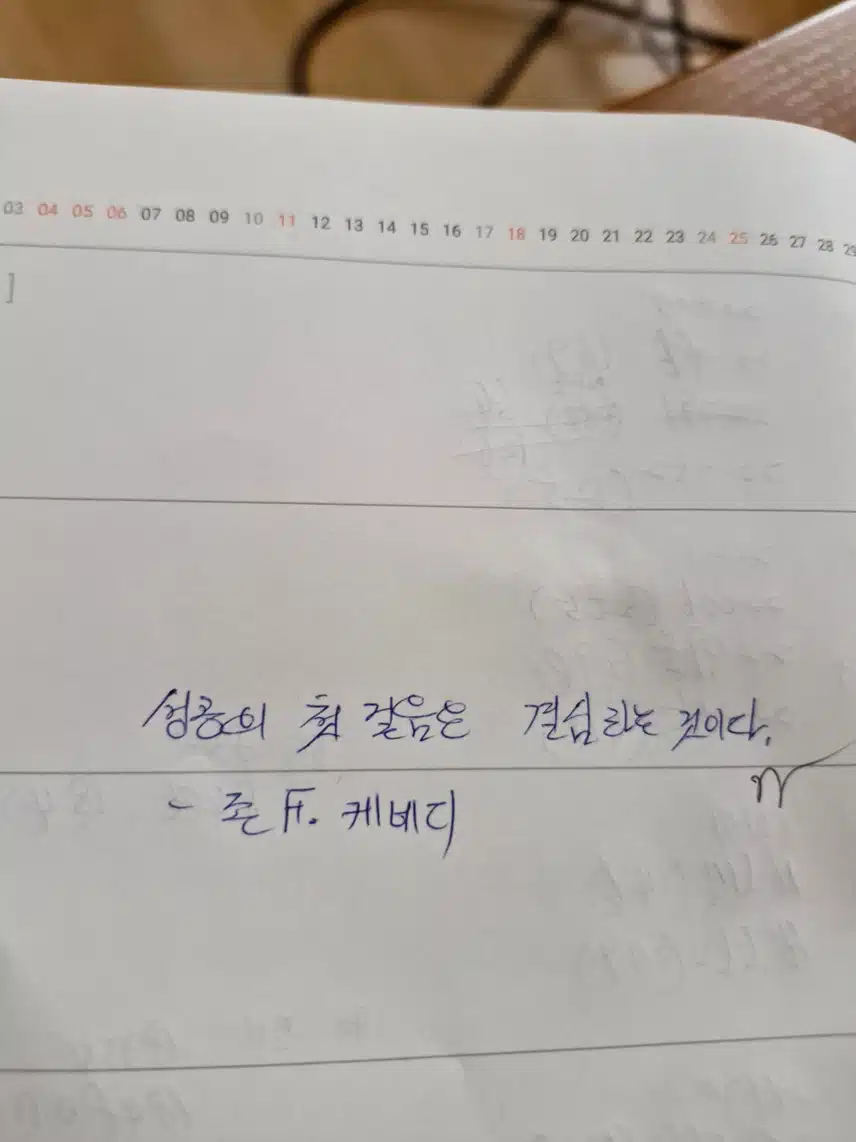 03 04 05 06 07 08 09 10 11 12 13 14 15 16 17 18 19 20 21 22 23 24 25 26 27 28 29
]
성공의 첫 걸음은 결심하는 것이다.
- 존 F. 케네디